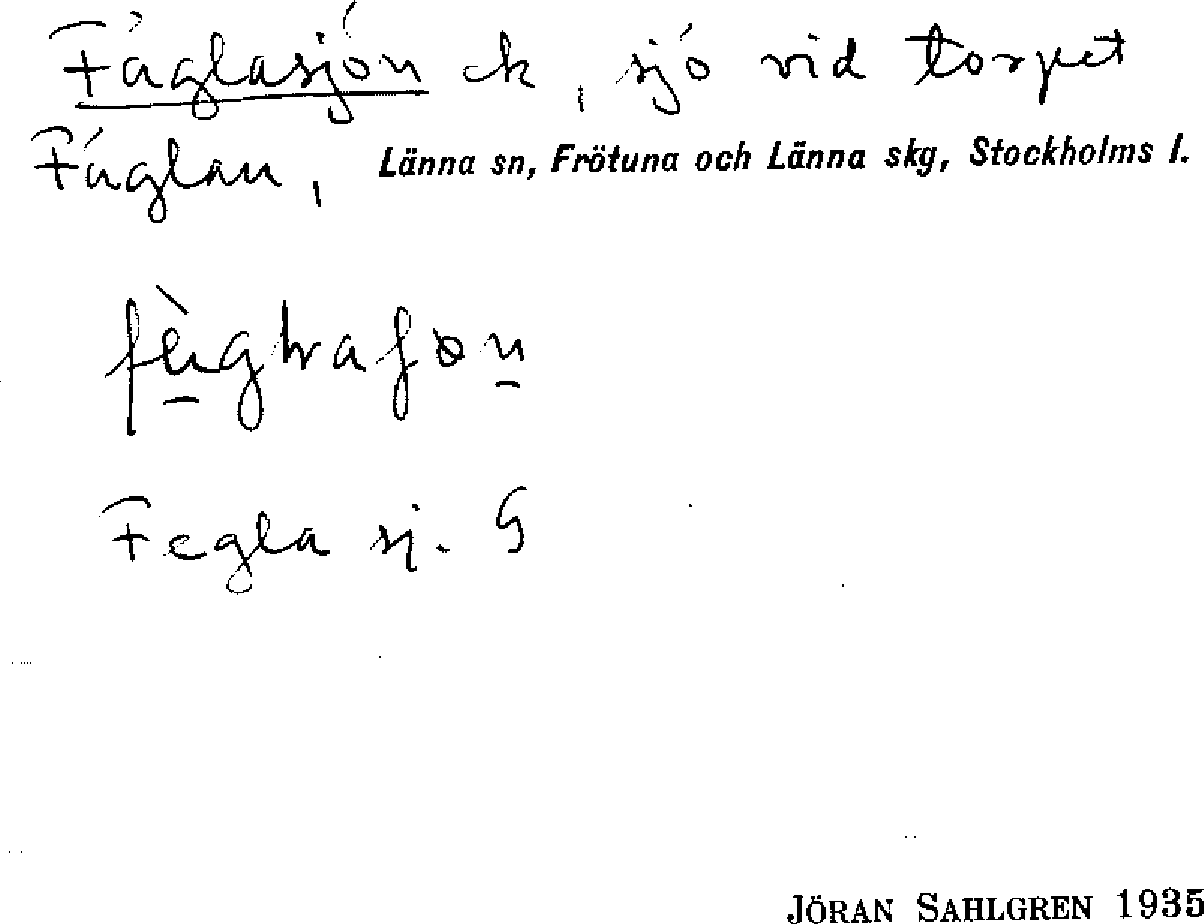 Fäglasjön ek, sjö vid torpet
Fäglan, Länna sn, Frötuna och Länna skg, Stockholms l.
Fegla sj. G
JÖRAN SAHLGREN 1935